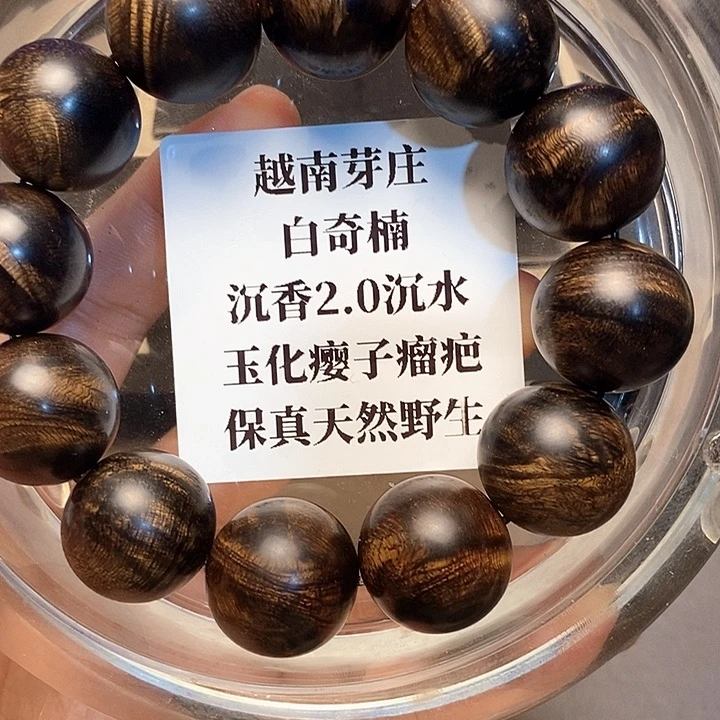 越南芽庄
白奇楠
沉香2.0沉水
玉化瘿子瘤疤
保真天然野生